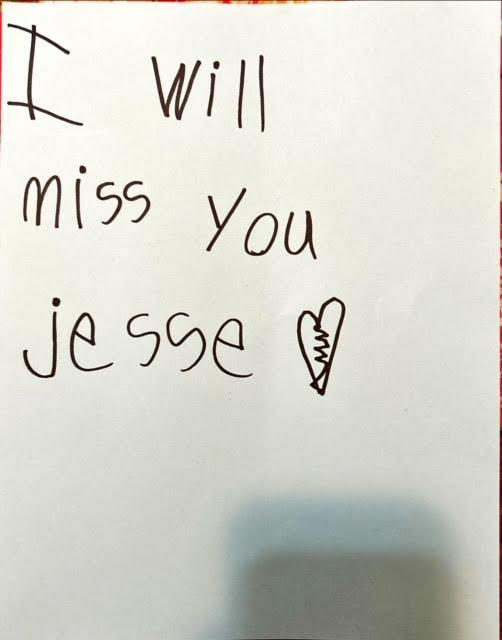 I Will
miss you
jesse